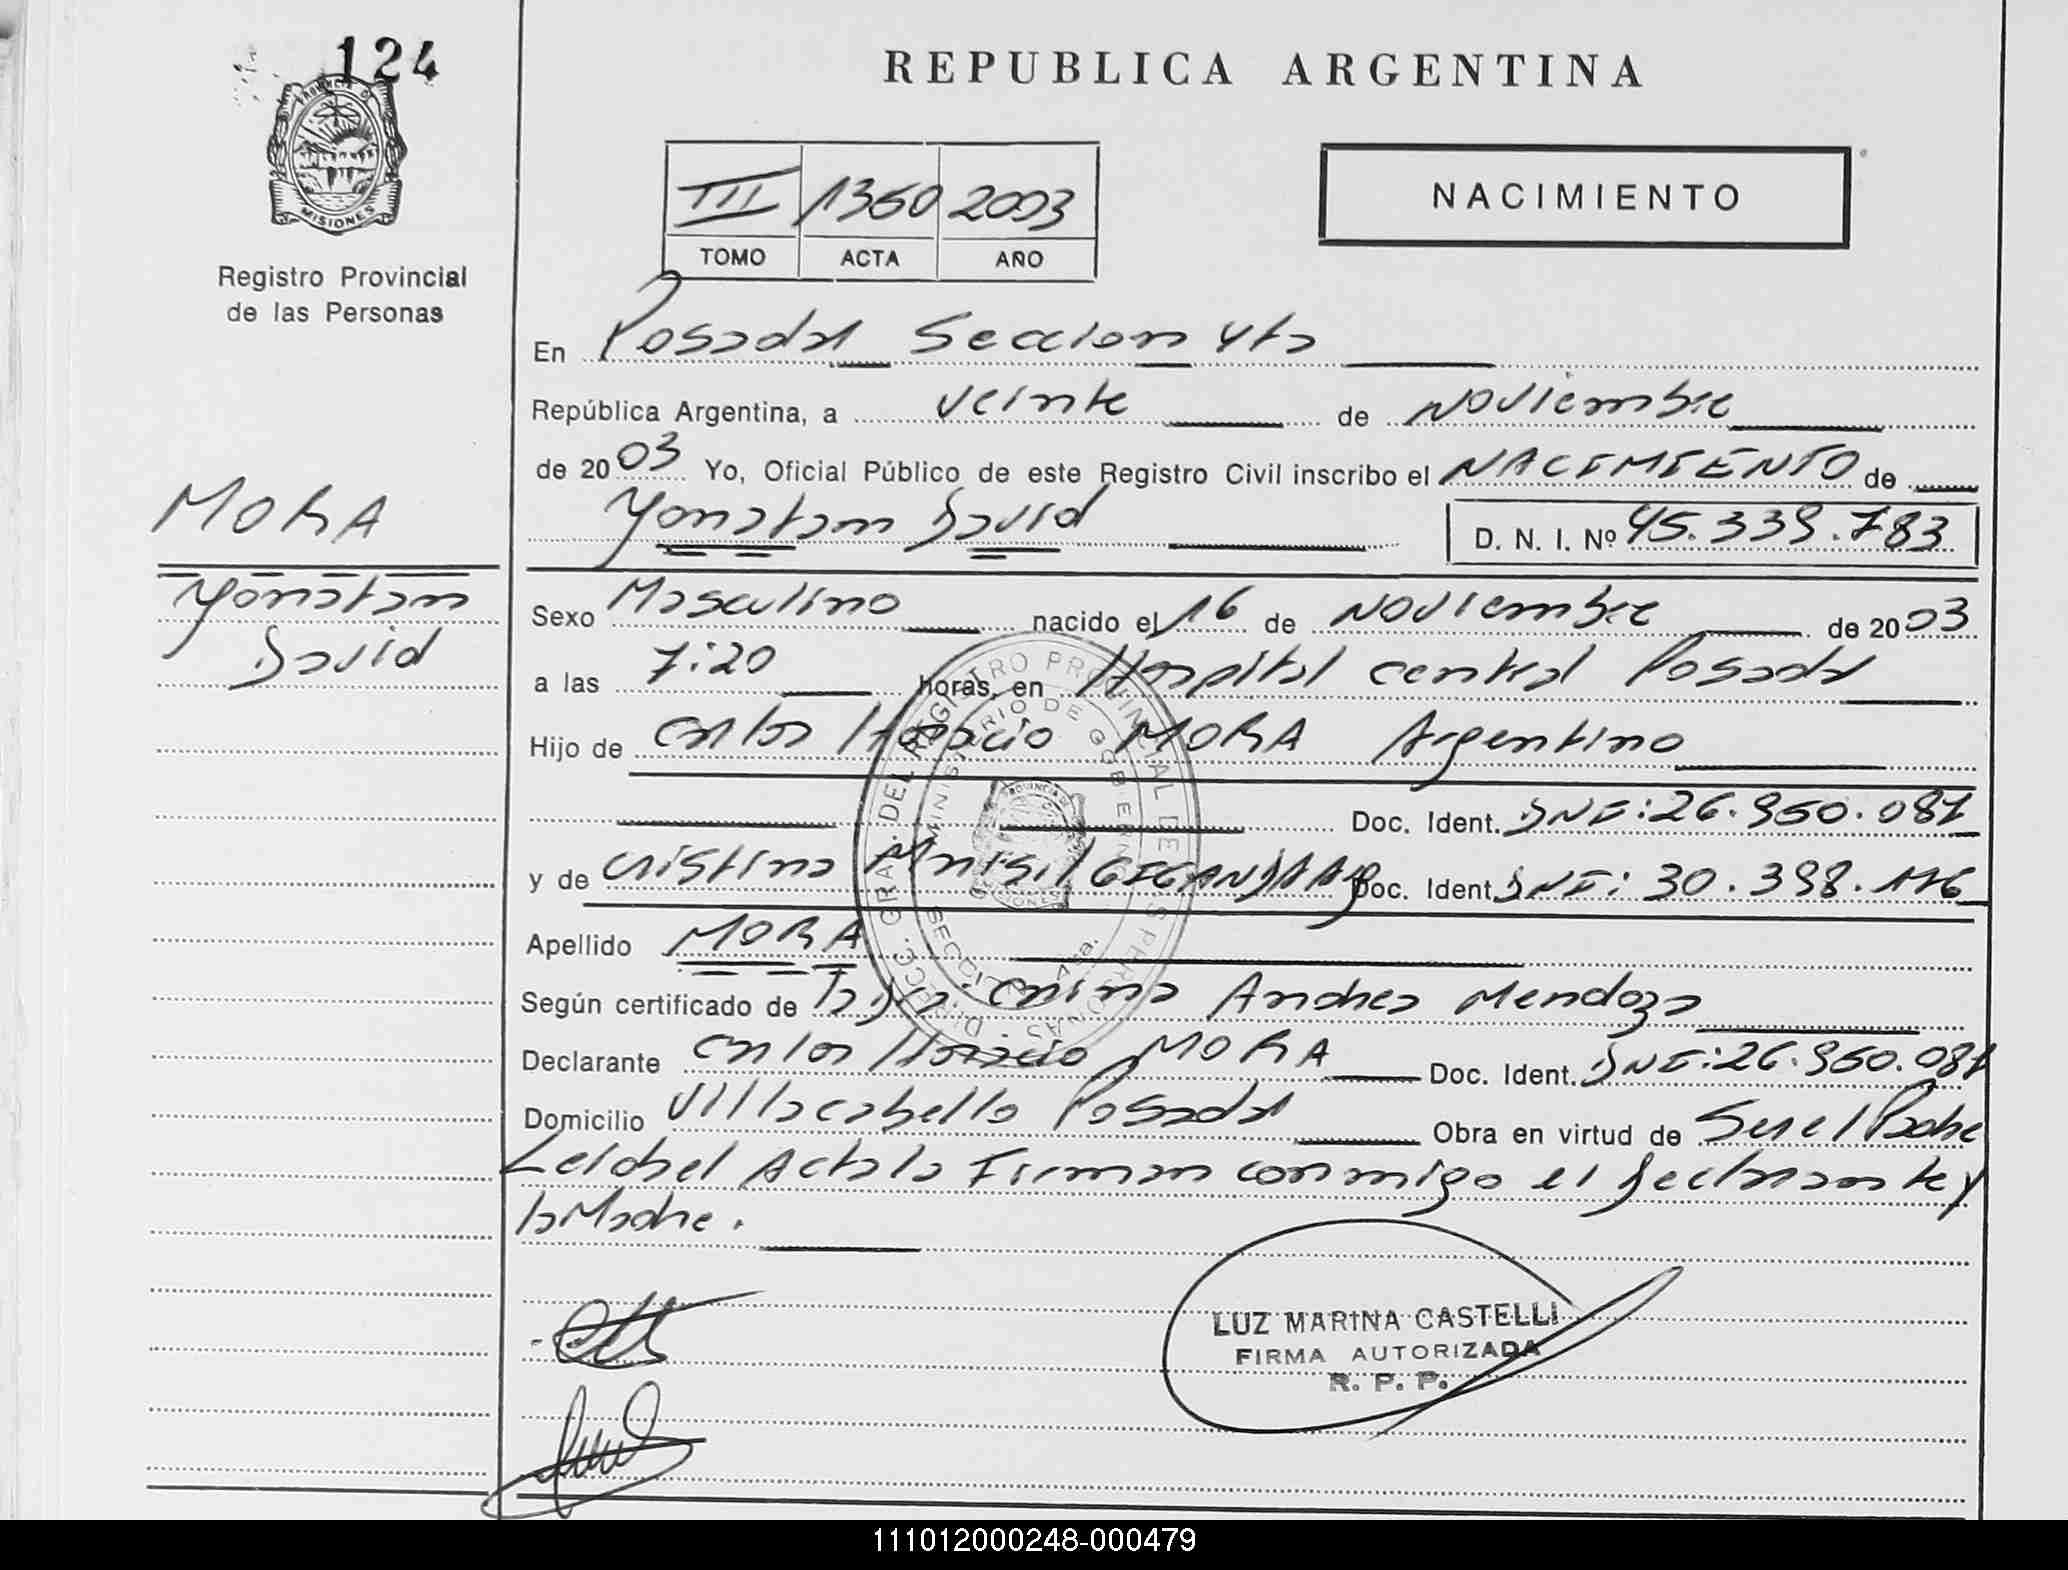 124
PROVINCIA DE
MISIONES
Registro Provincial
de las Personas
REPUBLICA ARGENTINA
III 1360 2003
TOMO ACTA AÑO
NACIMIENTO
En Posadas Seccion 4ta
República Argentina, a veinte de Noviembre
de 2003 Yo, Oficial Público de este Registro Civil inscribo el NACIMIENTO de
Yonatan David D. N. I. Nº 45.339.783
MORA
Yonatan
David
Sexo Masculino nacido el 16 de Noviembre de 2003
a las 7:20 horas, en Hospital central Posadas
Hijo de Carlos Horacio MORA Argentino
Doc. Ident. DNI: 26.960.081
y de Cristina Doc. Ident. DNI: 30.398.116
Apellido MORA
Según certificado de Andrea Mendoza
Declarante Carlos Horacio MORA Doc. Ident. DNI: 26.960.081
Domicilio Villa cabello Posadas Obra en virtud de Ser el Padre
Leida el Acta la Firman conmigo el Declarante y
la Madre.
DIRECC. GRAL. DEL REGISTRO PROVINCIAL DE LAS PERSONAS
MINISTERIO DE GOBIERNO
SECCION 4ta.
LUZ MARINA CASTELLI
FIRMA AUTORIZADA
R. P. P.
111012000248-000479